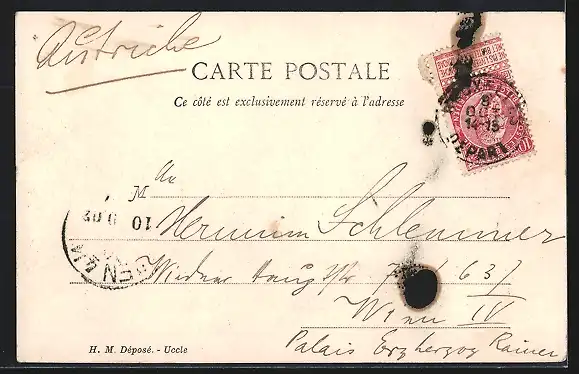 Autriche
CARTE POSTALE
Ce côté est exclusivement réservé à l'adresse
8
14-15
DEPART
An
M
Hermine Schlemmer
10
Wiedner Hauptstr. 63
Wien IV
Palais Erzherzog Rainer
H. M. Déposé. - Uccle